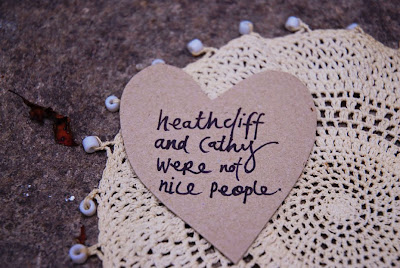 heathcliff
and Cathy
were not
nice people.